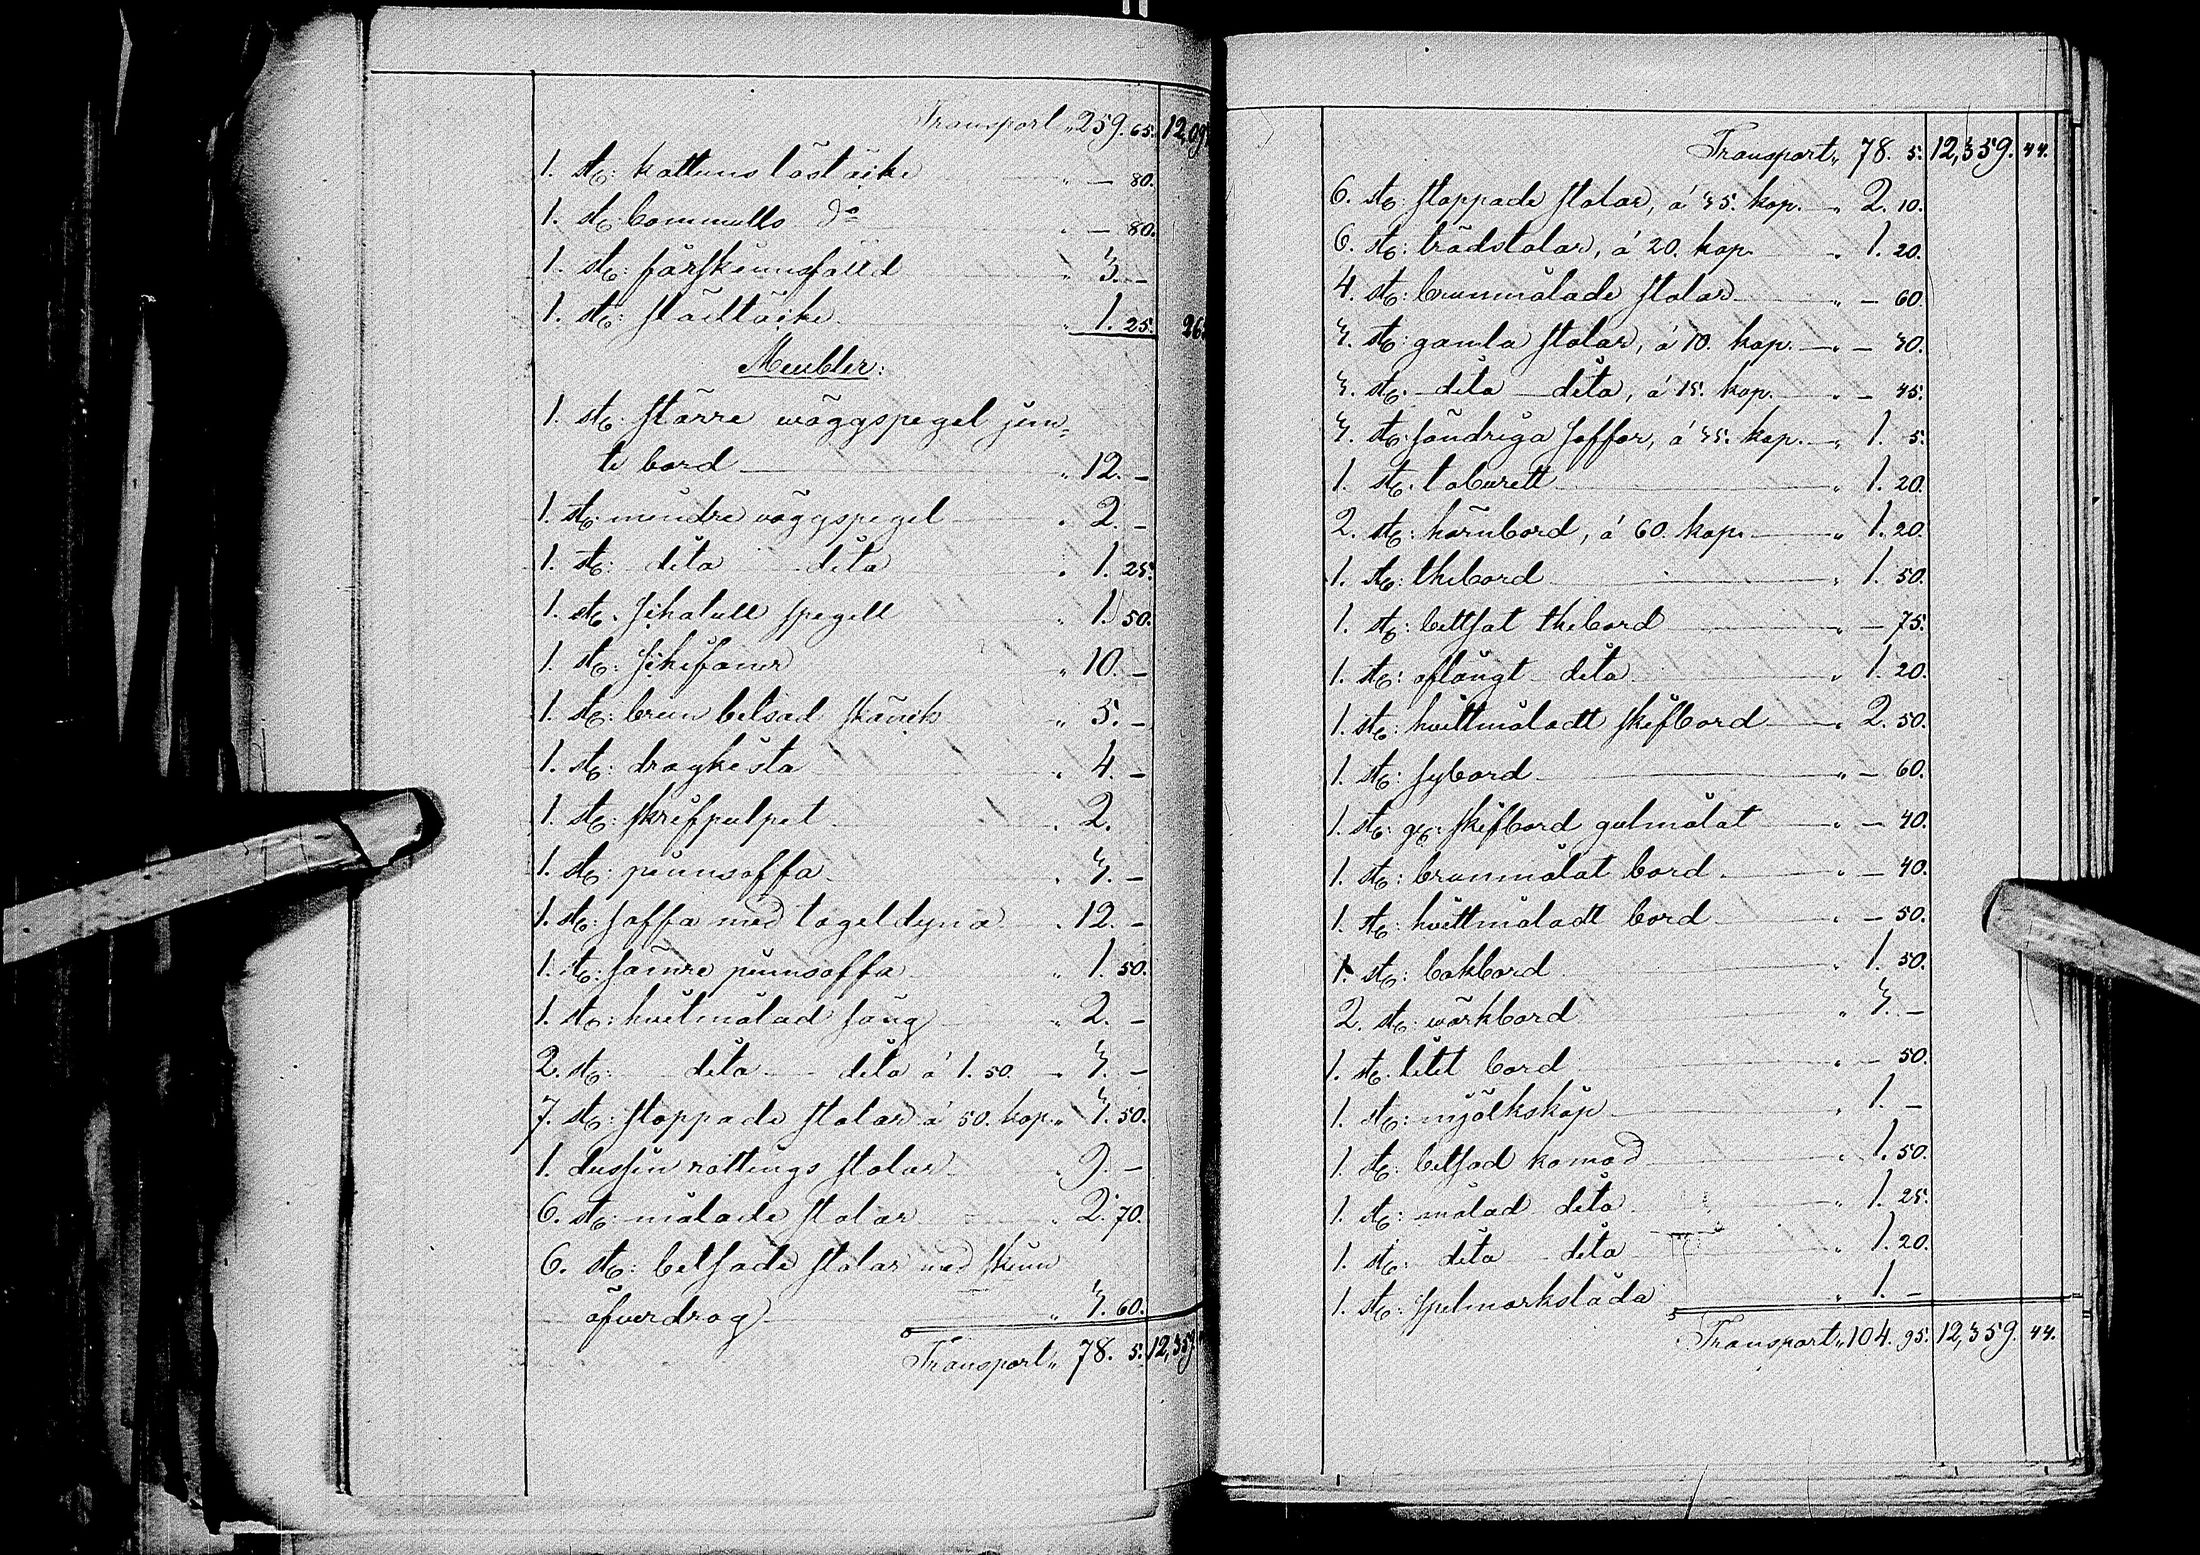 Transport „ 259. 65. 12,09
1. st: kattuns täcke „ — 80.
1. st: bommulls do „ — 80.
1. st: fårskinnsfäll „ 3. —
1. st: städtäcke „ 1. 25. 26
Meubler:
1. st: större wäggspegel jem-
te bord „ 12. —
1. st: mindre väggspegel „ 2. —
1. st: dito dito „ 1. 25.
1. st: spegell „ 1. 50.
1. st: „ 10. —
1. st: brun betsad skänk „ 5. —
1. st: dragkista „ 4. —
1. st: skrifpulpet „ 2.
1. st: pinnsoffa „ 3. —
1. st: soffa med tageldyna „ 12. —
1. st: sämre pinnsoffa „ 1. 50.
1. st: hvitmålad säng „ 2. —
2. st: dito dito á 1. 50. „ 3. —
7. st: stoppade stolar á 50. kop. „ 3. 50.
1. dussin rottings stolar „ 9. —
6. st: målade stolar „ 2. 70.
6. st: betsade stolar med skinn
öfverdrag „ 3. 60.
Transport „ 78. 5. 12,359
Transport „ 78. 5. 12,359. 44.
6. st: stoppade stolar, á 35. kop. „ 2. 10.
6. st: trädstolar, á 20. kop. „ 1. 20.
4. st: brunmålade stolar „ — 60.
3. st: gamla stolar, á 10. kop. „ — 30.
3. st: dito dito, á 15. kop. „ — 45.
3. st: söndriga soffor, á 35. kop. „ 1. 5.
1. st: taburett „ 1. 20.
2. st: hörnbord, á 60. kop. „ 1. 20.
1. st: thebord „ 1. 50.
1. st: bettsat thebord „ — 75.
1. st: aflångt dito „ 1. 20.
1. st: hvittmåladt skifbord „ 2. 50.
1. st: sybord „ — 60.
1. st: gl: skifbord gulmålat „ — 40.
1. st: brunmålat bord „ — 40.
1. st: hvittmåladt bord „ — 50.
1. st: bakbord „ 1. 50.
2. st: wärkbord „ 3. —
1. st: litet bord „ — 50.
1. st: mjölkskåp „ 1. —
1. st: betsad komod „ 1. 50.
1. st: målad dito „ 1. 25.
1. st: dito dito „ 1. 20.
1. st: spelmarkslåda „ 1. —
Transport „ 104. 95. 12,359. 44.